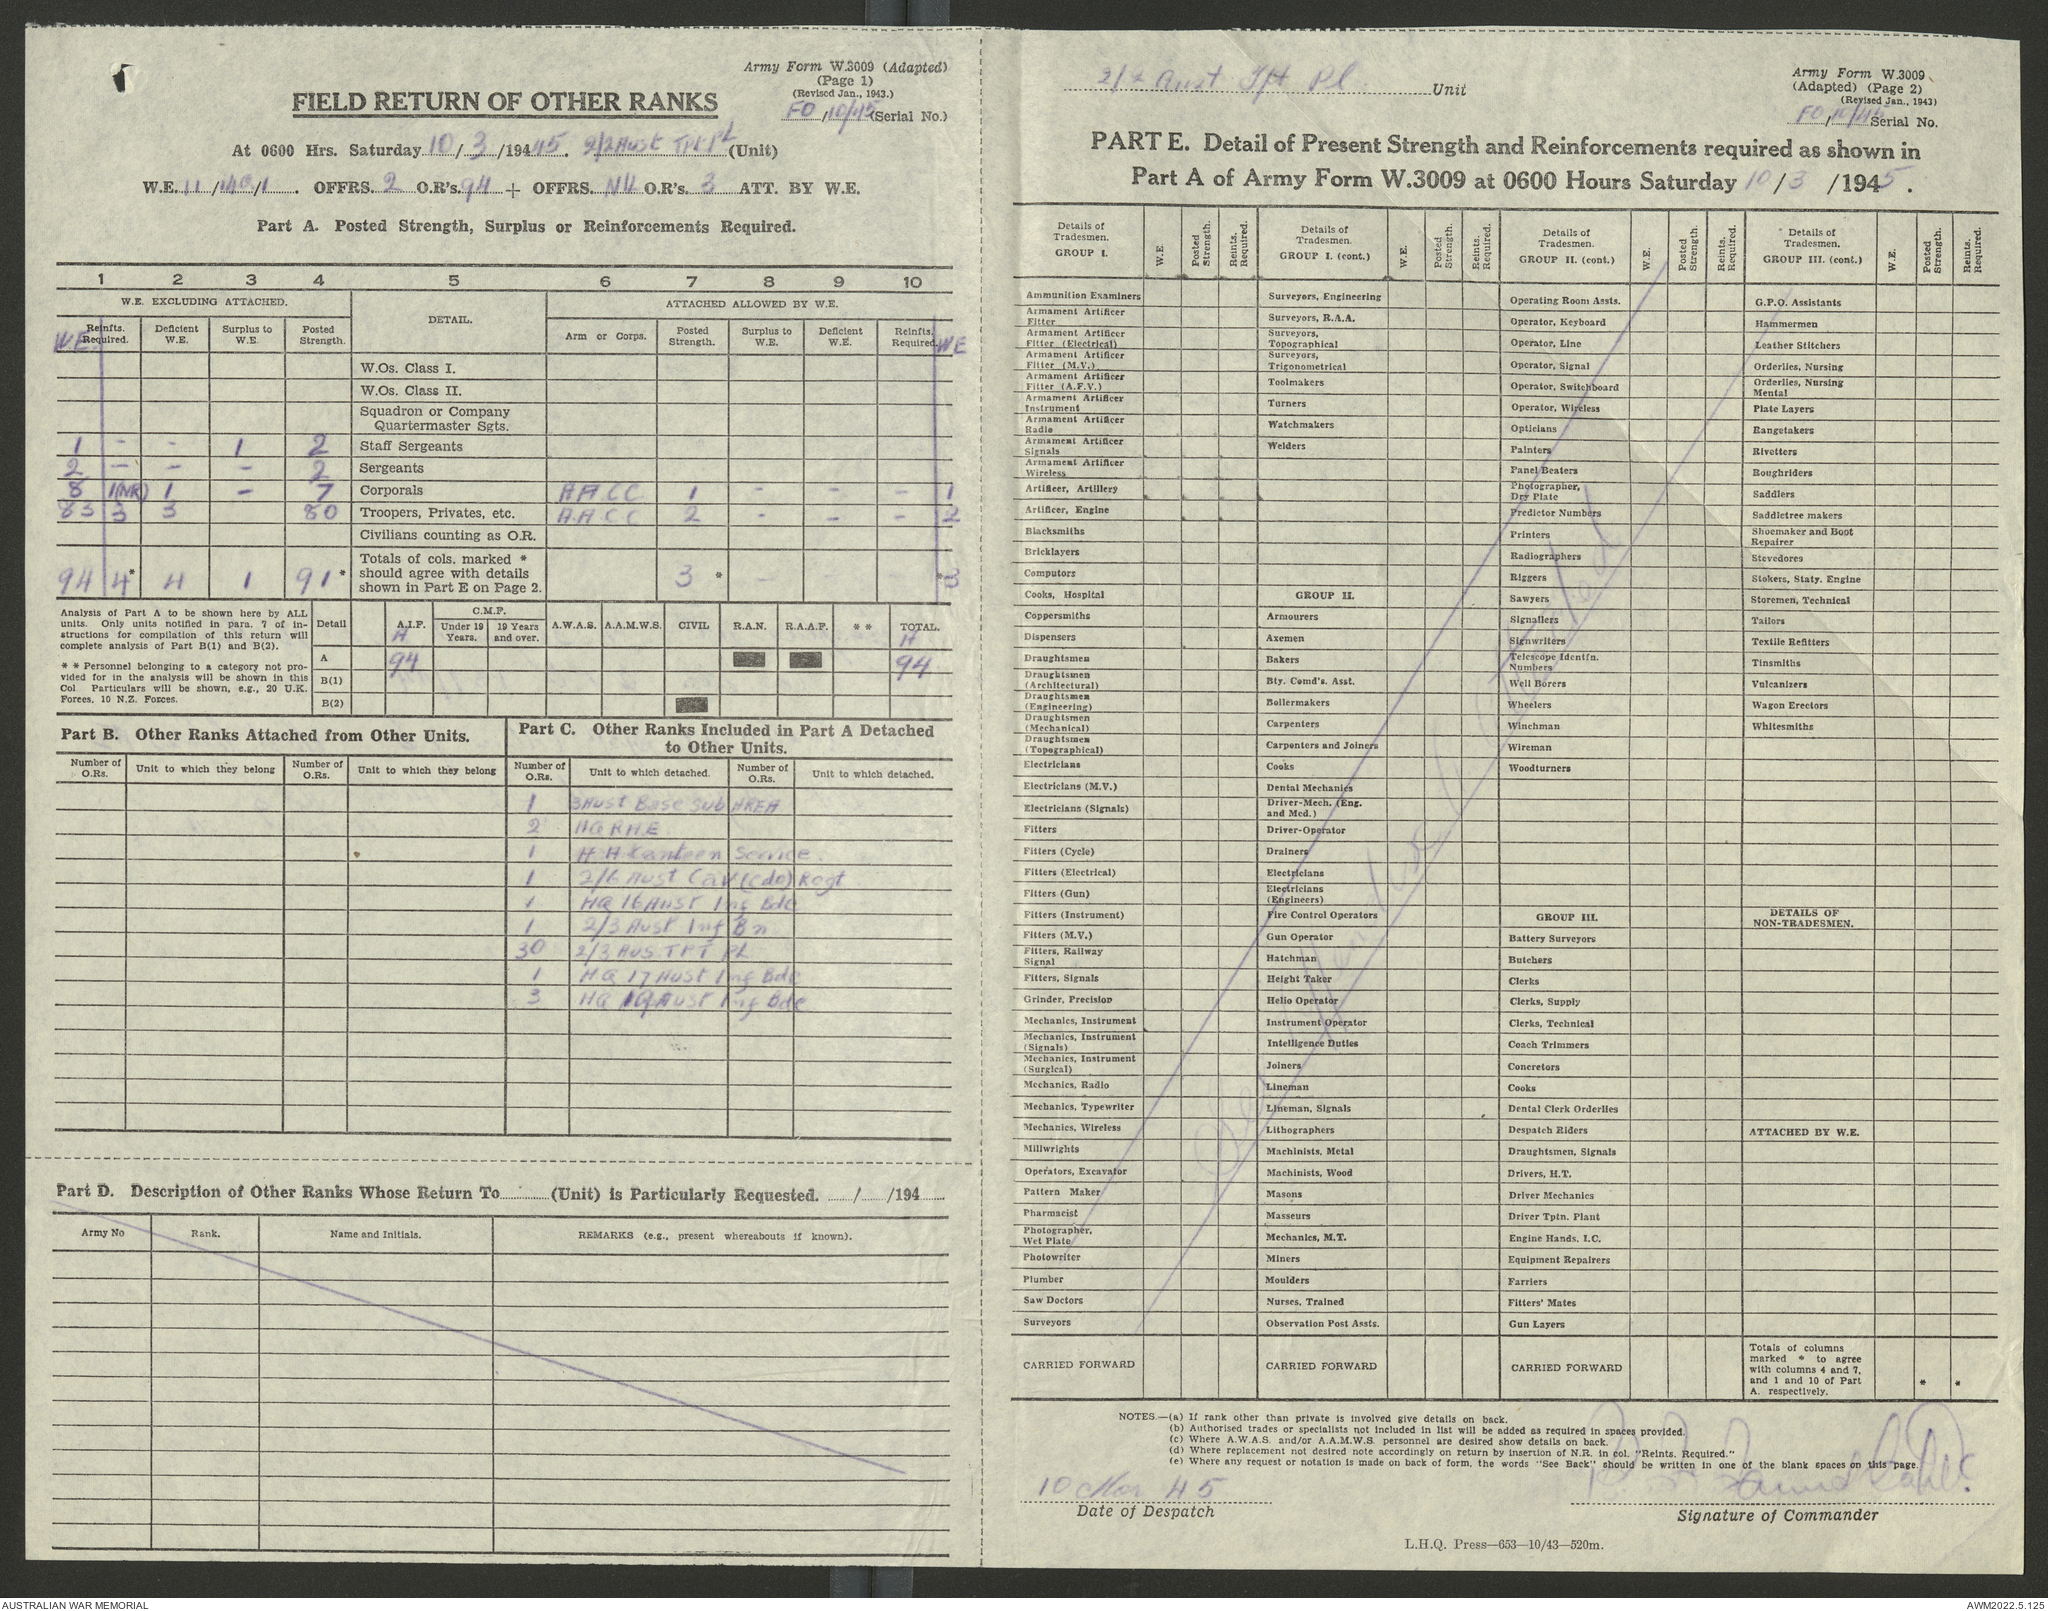 Army Form W.3009 (Adapted)
(Page 1)
(Revised Jan., 1943.)
FIELD RETURN OF OTHER RANKS
FO/10/45 (Serial No.)
At 0600 Hrs. Saturday 10/3/194 45. 2/2 Aust TPT PL (Unit)
W.E. 11/140/1. OFFRS. 2 O.R's. 94 + OFFRS. Nil O.R's. 3 ATT. BY W.E.
Part A. Posted Strength, Surplus or Reinforcements Required.
1 2 3 4 5 6 7 8 9 10
W.E. EXCLUDING ATTACHED. DETAIL. ATTACHED ALLOWED BY W.E.
W.E. Reinfts. Required. Deficient W.E. Surplus to W.E. Posted Strength. Arm or Corps. Posted Strength. Surplus to W.E. Deficient W.E. Reinfts. Required. WE
W.Os. Class I.
W.Os. Class II.
Squadron or Company
Quartermaster Sgts.
1 - - 1 2 Staff Sergeants
2 - - - 2 Sergeants
8 1(NR) 1 - 7 Corporals AACC 1 - - - 1
83 3 3 80 Troopers, Privates, etc. AACC 2 - - - 2
Civilians counting as O.R.
94 4* 4 1 91* Totals of cols. marked * should agree with details shown in Part E on Page 2. 3 * - *3
Analysis of Part A to be shown here by ALL
units. Only units notified in para. 7 of in-
structions for compilation of this return will
complete analysis of Part B(1) and B(2).
* * Personnel belonging to a category not pro-
vided for in the analysis will be shown in this
Col Particulars will be shown, e.g., 20 U.K.
Forces, 10 N.Z. Forces.
Detail A.I.F. C.M.F. Under 19 Years. 19 Years and over. A.W.A.S. A.A.M.W.S. CIVIL R.A.N. R.A.A.F. * * TOTAL.
A 94 94
B(1)
B(2)
Part B. Other Ranks Attached from Other Units.
Number of O.Rs. Unit to which they belong Number of O.Rs. Unit to which they belong
Part C. Other Ranks Included in Part A Detached
to Other Units.
Number of O.Rs. Unit to which detached. Number of O.Rs. Unit to which detached.
1 3 Aust Base Sub AREA
2 HQ RAE
1 A A Canteen Service
1 2/6 Aust Cav (Cdo) Regt
1 HQ 16 Aust Inf Bde
1 2/3 Aust Inf Bn
30 2/3 Aus. TPT PL
1 HQ 17 Aust Inf Bde
3 HQ 19 Aust Inf Bde
Part D. Description of Other Ranks Whose Return To (Unit) is Particularly Requested. / /194
Army No Rank. Name and Initials. REMARKS (e.g., present whereabouts if known).
2/2 Aust Tpt Pl Unit
Army Form W.3009
(Adapted) (Page 2)
(Revised Jan., 1943)
FO/10/45 Serial No.
PART E. Detail of Present Strength and Reinforcements required as shown in
Part A of Army Form W.3009 at 0600 Hours Saturday 10/3/1945.
Details of Tradesmen. GROUP I. W.E. Posted Strength. Reints. Required.
Ammunition Examiners
Armament Artificer Fitter
Armament Artificer Fitter (Electrical)
Armament Artificer Fitter (M.V.)
Armament Artificer Fitter (A.F.V.)
Armament Artificer Instrument
Armament Artificer Radio
Armament Artificer Signals
Armament Artificer Wireless
Artificer, Artillery
Artificer, Engine
Blacksmiths
Bricklayers
Computors
Cooks, Hospital
Coppersmiths
Dispensers
Draughtsmen
Draughtsmen (Architectural)
Draughtsmen (Engineering)
Draughtsmen (Mechanical)
Draughtsmen (Topographical)
Electricians
Electricians (M.V.)
Electricians (Signals)
Fitters
Fitters (Cycle)
Fitters (Electrical)
Fitters (Gun)
Fitters (Instrument)
Fitters (M.V.)
Fitters, Railway Signal
Fitters, Signals
Grinder, Precision
Mechanics, Instrument
Mechanics, Instrument (Signals)
Mechanics, Instrument (Surgical)
Mechanics, Radio
Mechanics, Typewriter
Mechanics, Wireless
Millwrights
Operators, Excavator
Pattern Maker
Pharmacist
Photographer, Wet Plate
Photowriter
Plumber
Saw Doctors
Surveyors
CARRIED FORWARD
Details of Tradesmen. GROUP I. (cont.) W.E. Posted Strength. Reints. Required.
Surveyors, Engineering
Surveyors, R.A.A.
Surveyors, Topographical
Surveyors, Trigonometrical
Toolmakers
Turners
Watchmakers
Welders
GROUP II.
Armourers
Axemen
Bakers
Bty. Comd's. Asst.
Boilermakers
Carpenters
Carpenters and Joiners
Cooks
Dental Mechanics
Driver-Mech. (Eng. and Med.)
Driver-Operator
Drainers
Electricians
Electricians (Engineers)
Fire Control Operators
Gun Operator
Hatchman
Height Taker
Helio Operator
Instrument Operator
Intelligence Duties
Joiners
Lineman
Lineman, Signals
Lithographers
Machinists, Metal
Machinists, Wood
Masons
Masseurs
Mechanics, M.T.
Miners
Moulders
Nurses, Trained
Observation Post Assts.
CARRIED FORWARD
Details of Tradesmen. GROUP II. (cont.) W.E. Posted Strength. Reints. Required.
Operating Room Assts.
Operator, Keyboard
Operator, Line
Operator, Signal
Operator, Switchboard
Operator, Wireless
Opticians
Painters
Panel Beaters
Photographer, Dry Plate
Predictor Numbers
Printers
Radiographers
Riggers
Sawyers
Signallers
Signwriters
Telescope Identfn. Numbers
Well Borers
Wheelers
Winchman
Wireman
Woodturners
GROUP III.
Battery Surveyors
Butchers
Clerks
Clerks, Supply
Clerks, Technical
Coach Trimmers
Concretors
Cooks
Dental Clerk Orderlies
Despatch Riders
Draughtsmen, Signals
Drivers, H.T.
Driver Mechanics
Driver Tptn. Plant
Engine Hands, I.C.
Equipment Repairers
Farriers
Fitters' Mates
Gun Layers
CARRIED FORWARD
Details of Tradesmen. GROUP III. (cont.) W.E. Posted Strength. Reints. Required.
G.P.O. Assistants
Hammermen
Leather Stitchers
Orderlies, Nursing
Orderlies, Nursing Mental
Plate Layers
Rangetakers
Rivetters
Roughriders
Saddlers
Saddletree makers
Shoemaker and Boot Repairer
Stevedores
Stokers, Staty. Engine
Storemen, Technical
Tailors
Textile Refitters
Tinsmiths
Vulcanizers
Wagon Erectors
Whitesmiths
DETAILS OF NON-TRADESMEN.
ATTACHED BY W.E.
Totals of columns marked * to agree with columns 4 and 7, and 1 and 10 of Part A. respectively. * *
NOTES.—(a) If rank other than private is involved give details on back.
(b) Authorised trades or specialists not included in list will be added as required in spaces provided.
(c) Where A.W.A.S. and/or A.A.M.W.S. personnel are desired show details on back.
(d) Where replacement not desired note accordingly on return by insertion of N.R. in col. "Reints. Required."
(e) Where any request or notation is made on back of form, the words "See Back" should be written in one of the blank spaces on this page.
10 Mar 45
Date of Despatch
Signature of Commander
L.H.Q. Press—653—10/43—520m.
AUSTRALIAN WAR MEMORIAL
AWM2022.5.125